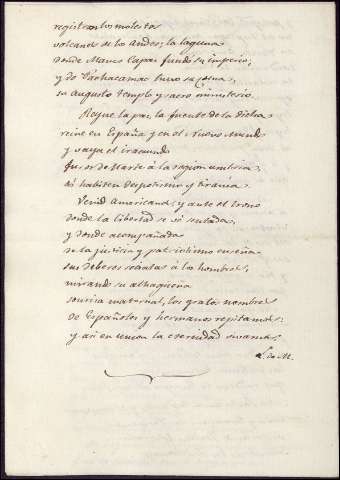 registran los molestos
volcanes de los Andes; la laguna
donde Manco Capac fundó su imperio;
y do Pachacamac tuvo su
su augusto templo y sacro ministerio.
Reyne la paz, la fuente de la dicha
reine en España y en el Nuevo Mundo
y vaya el iracundo
furor de Marte á la region umbria,
dó habiten despotismo y tirania.
Venid Americanos, y ante el trono
donde la libertad se vé sentada,
y donde acompañada
de la justicia y patriotismo enseña
sus deberes á los hombres,
mirando su alhagueña
sonrisa maternal, los gratos nombres
de Españoles y hermanos repitamos;
y asi en union la eternidad vivamos.